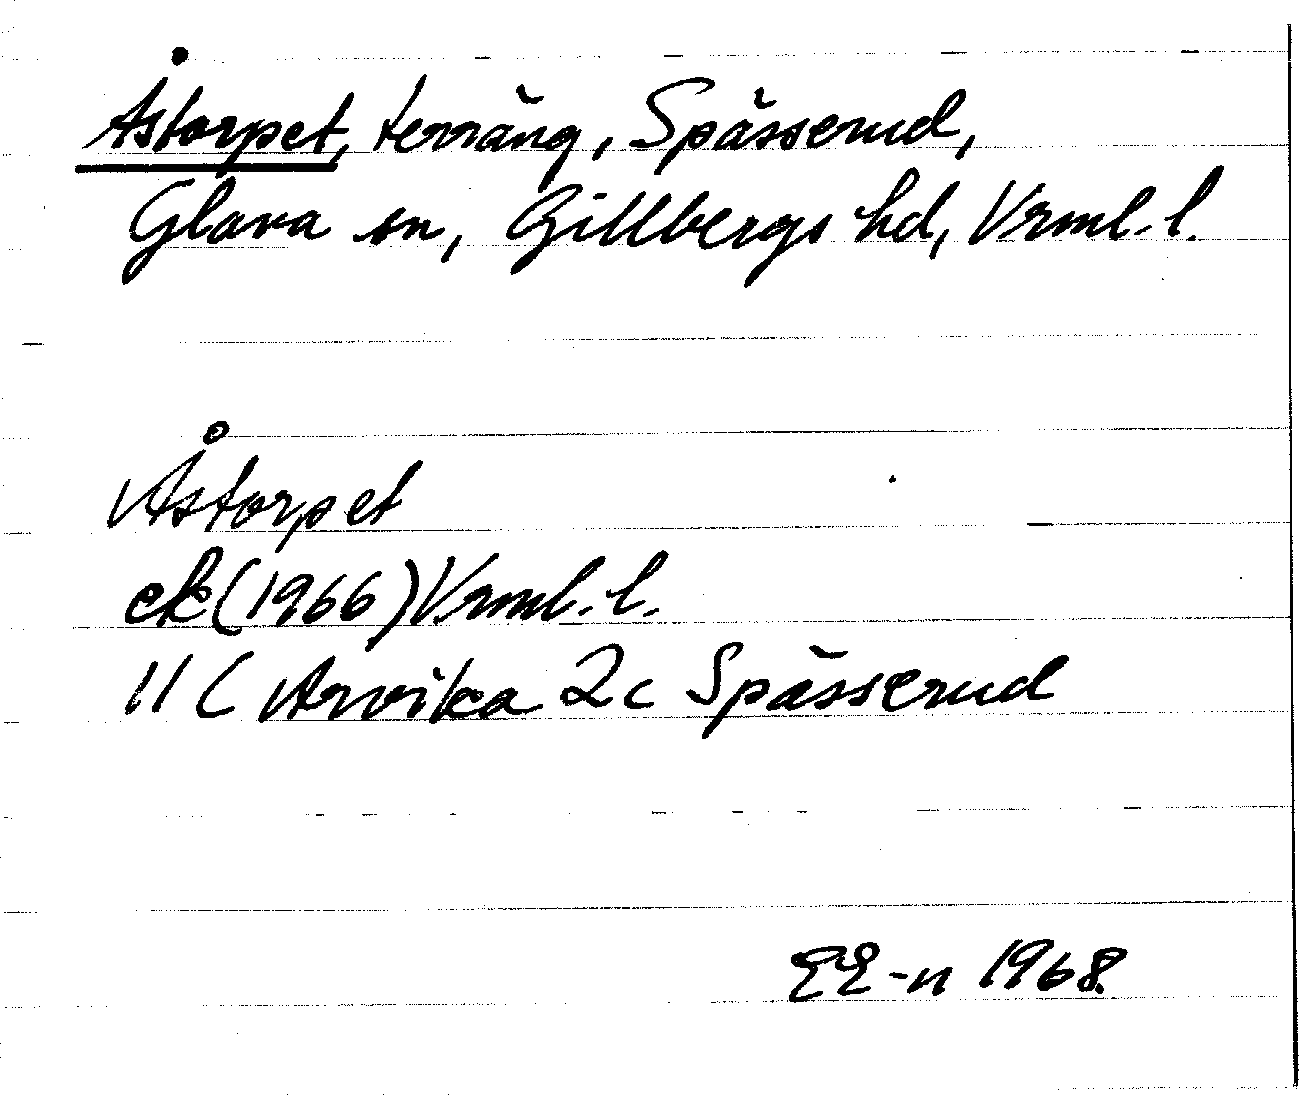 Åstorpet, terräng, Spässerud,
Glava sn, Gillbergs hd, Vrml. l.
Åstorpet
ek (1966) Vrml. l.
11 C Arvika 2c Spässerud
EE-n 1968.